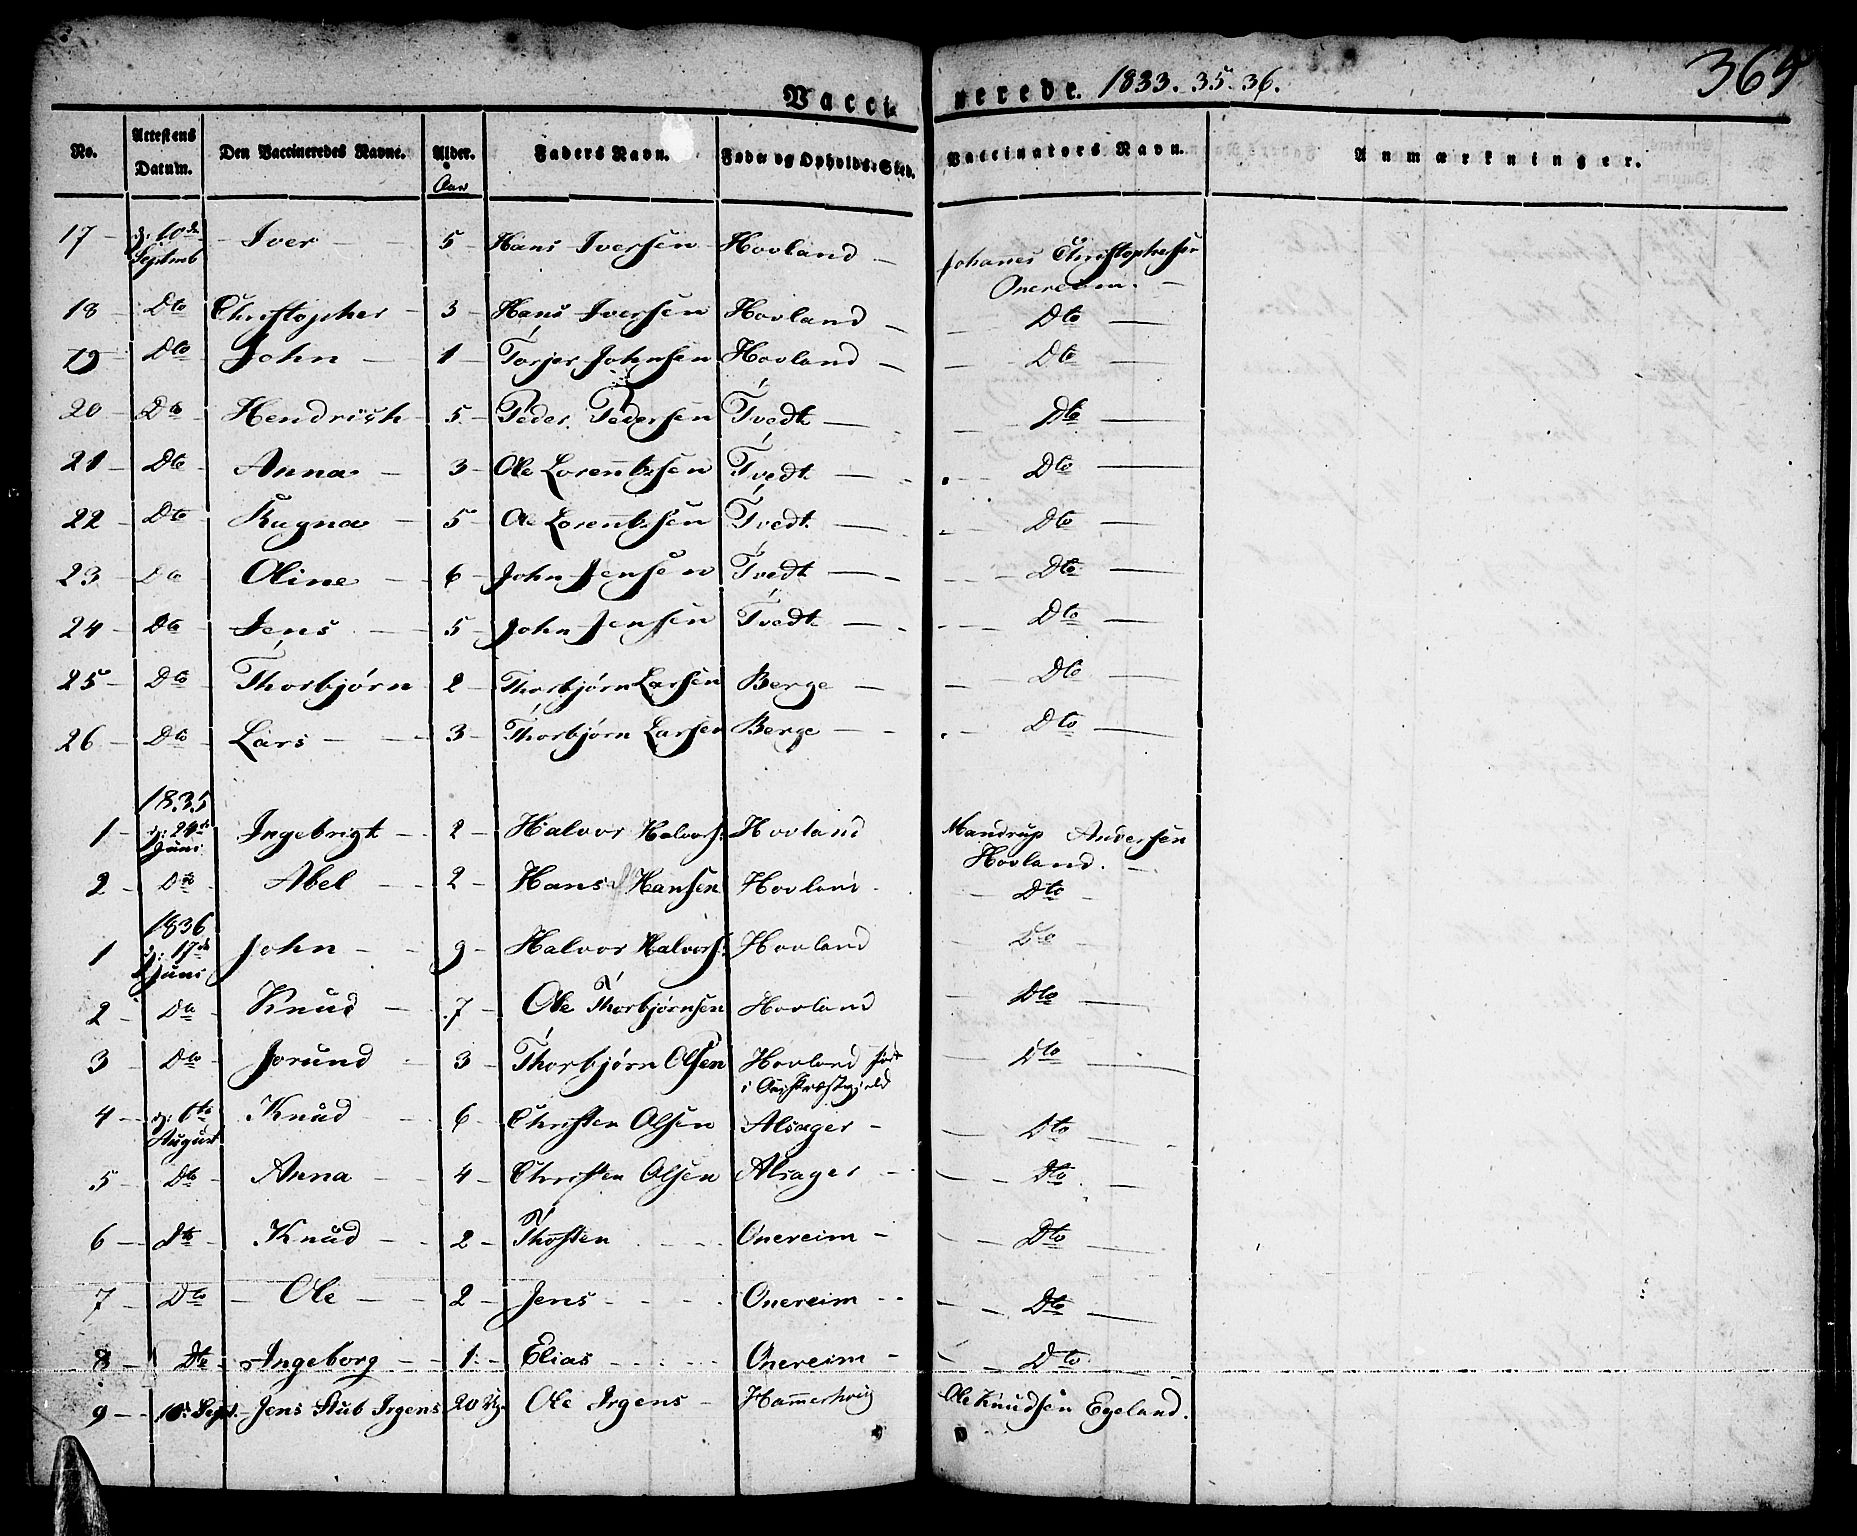 365
Vaccinerede. 1833. 35. 36.
No. Attestens Datum. Den Vaccineredes Navne. Alder. Faders Navn. Føde og Opholds-Sted. Vaccinators Navn. Anmærkninger.
Aar
17 - d: 10de Septmb - Iver - 5 - Hans Iversen - Hovland - Johanes Christophersen
Onereim. -
18 - Dto Christopher - 3 - Hans Iversen Hovland - Dto
19 - Dto John - 1 - Torjer Johnsen Hovland - Dto
20 - Dto Hendrich - 5 - Peder Pedersen Tvedt - Dto
21 - Dto - Anna - 3 - Ole Lorentzsen Tvedt - Dto
22 - Dto Ragna - 5 - Ole Lorentzsen Tvedt - Dto
23 - Dto Oline - 6 - John Jensen Tvedt - Dto
24 - Dto - Jens - 5 - John Jensen Tvedt - Dto
25 - Dto - Thorbjørn 2 - Thorbjørn Larsen Berge - Dto
26 - Dto - Lars - 3 - Thorbjørn Larsen Berge - Dto
1835
1 - d: 24de Juni Ingebrigt - 2 - Halvor Halvors: Hovland Mandrup Andersen
Hovland. -
2 - Dto - Abel - 2 - Hans Hansen Hovland - Dto
1836
1 d: 17de Juni John - 9 - Halvor Halvors: Hovland - Dto
2 - Dto Knud - 7 - Ole Thorbjørnsen Hovland - Dto
3 - Dto - Jorund 3 - Thorbjørn Olsen Hovland født
i Præstegield - Dto
4 - d: 6te August Knud 6 - Christen Olsen Alsager - Dto
5 - Dto - Anna - 4 - Christen Olsen Alsager - Dto
6 - Dto Knud - 2 - Thosten - Onereim - Dto
7 - Dto - Ole - 2 - Jens - Onereim - Dto
8 - Dto - Ingeborg - 1 - Elias - Onereim - Dto
9 - Sept. - Jens Stub Irgens 20 Ug. Ole Irgens - Hammershvig Ole Knudsen Egeland.